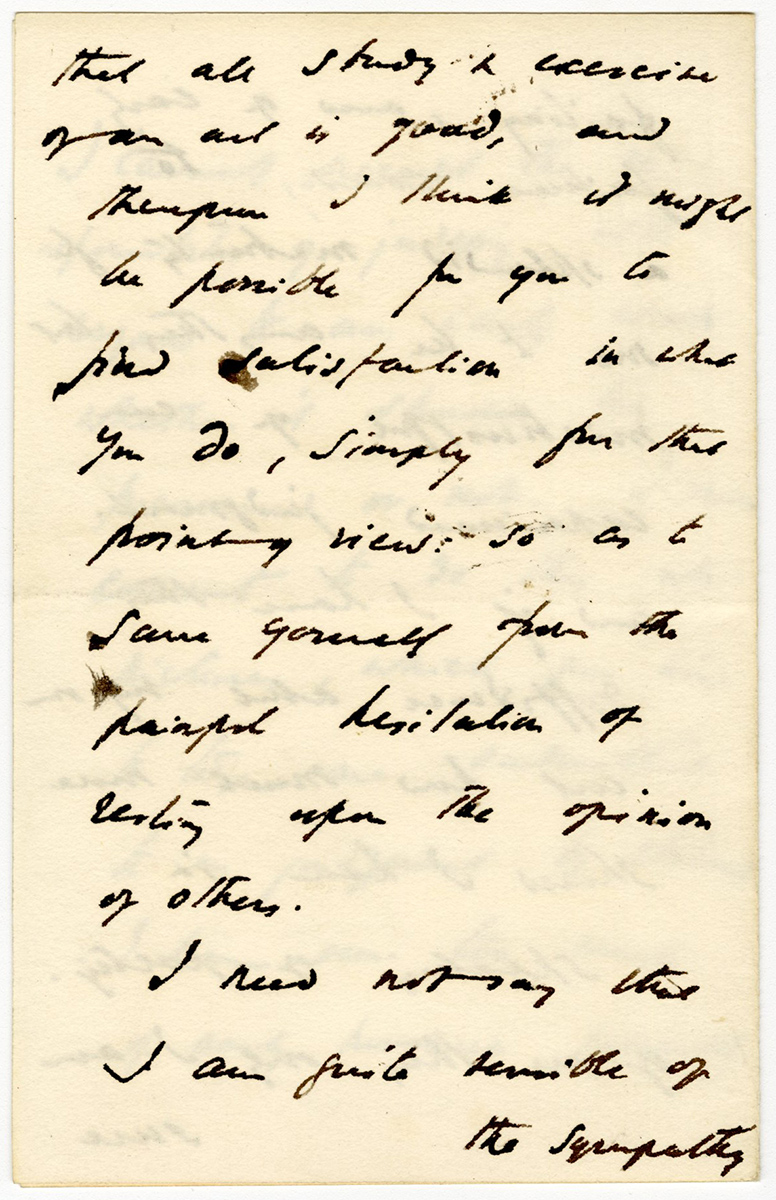 that all study & exercise
of an art is good, and
therefore I think it might
be possible for you to
find satisfaction in what
you do, simply from that
point of view: so as to
save yourself from the
painful hesitation of
resting upon the opinion
of others.
I need not say that
I am quite sensible of
the sympathy